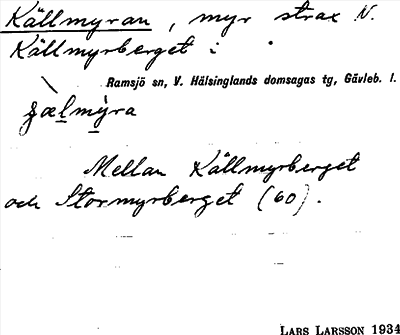 Källmyran, myr strax N.
Källmyrberget i
Ramsjö sn, V. Hälsinglands domsagas tg, Gävleb. l.
mỳra
Mellan Källmyrberget
och Stormyrberget (60).
LARS LARSSON 1934